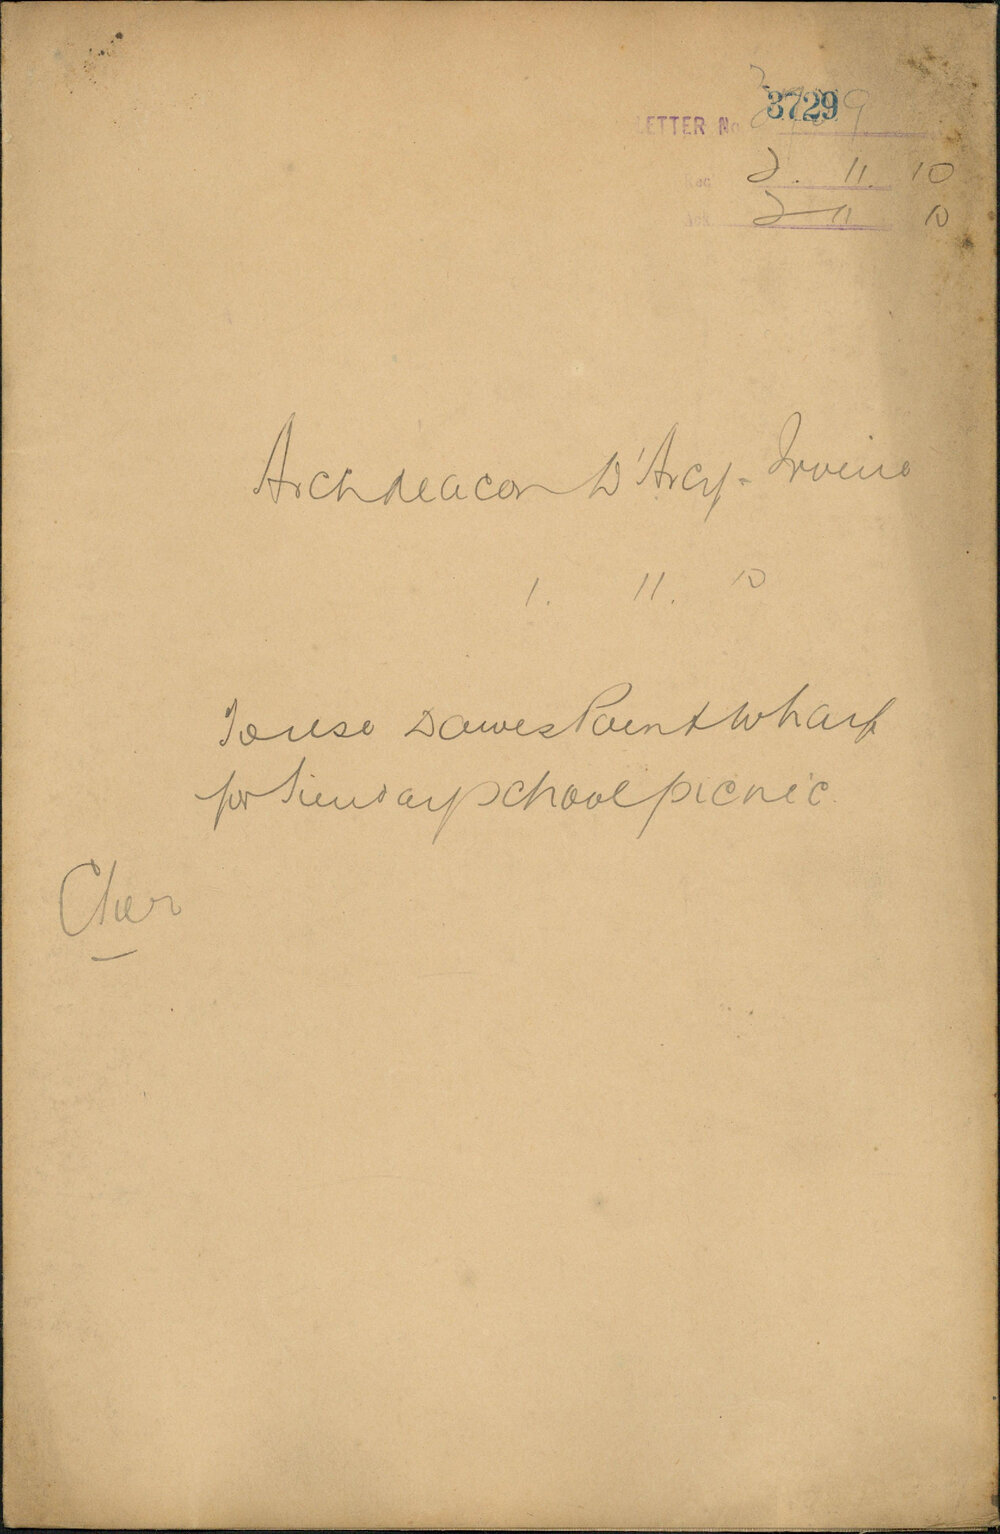 LETTER No 3729
Rec 2. 11. 10
Ack 2 11 10
Archdeacon D'Arcy-Irvine
1. 11. 10
To use Dawes Point Wharf
for Sunday school picnic.